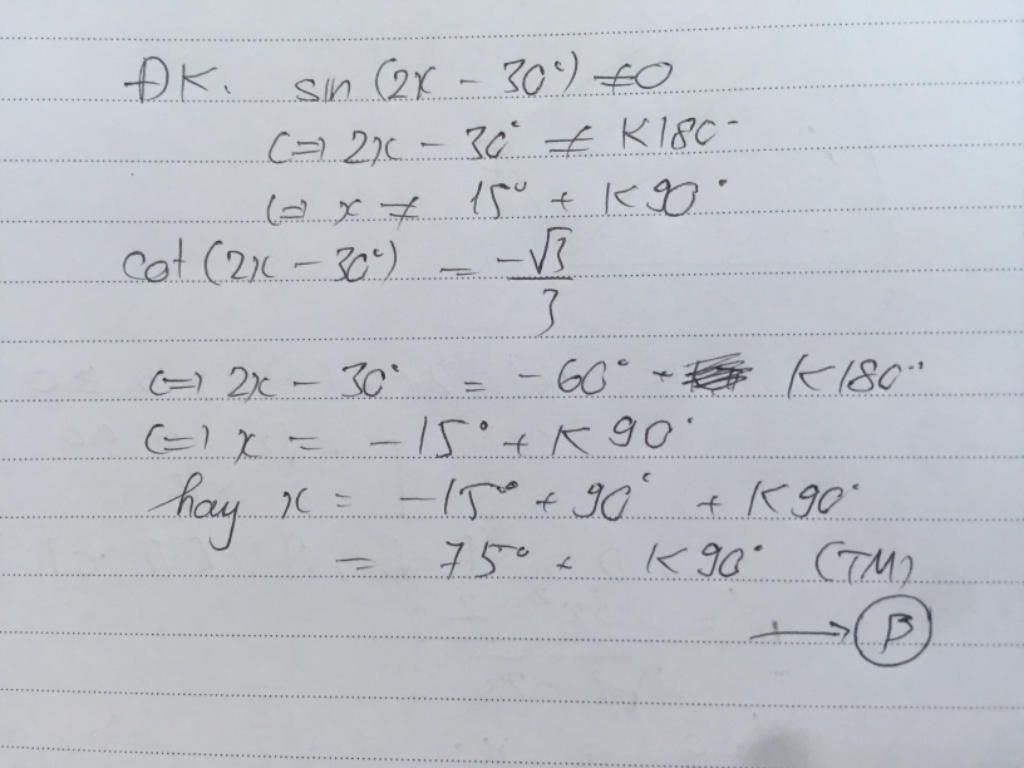 ĐK. sin (2x - 30°) ≠ 0
<=> 2x - 30° ≠ K180°
<=> x ≠ 15° + K90°
cot (2x - 30°) = -√3/3
<=> 2x - 30° = -60° + K180°
<=> x = -15° + K90°
hay x = -15° + 90° + K90°
= 75° + K90° (TM)
→ B